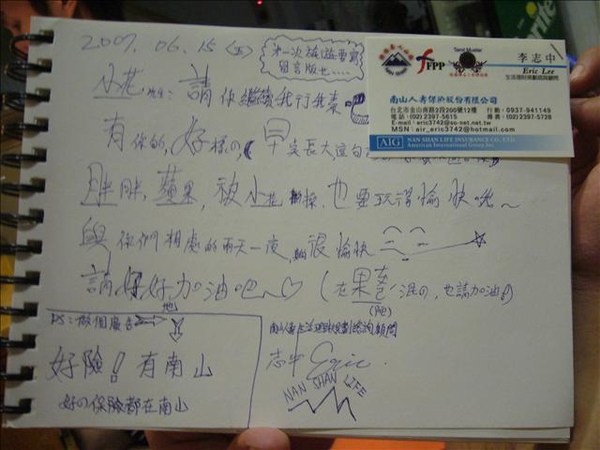 2007. 06. 15 (五)
第一次在這裡寫
留言版也.....
小花 請你繼續我行我素
有你的,好樣的,早安長大這句
胖胖,蘋果,被小花 也要玩得愉快哦~
與你們相處的兩天一夜,很愉快
請好好加油吧~♡ (在果 混の,也請加油の)
PS=做個廣告
好險! 有南山
好の保險都在南山
志中 Eric.
NAN SHAN LIFE
FPP
李志中
Eric Lee
南山人壽保險股份有限公司
台北市金山南路2段200號13樓 行動:0937-941149
電話:(02) 2397-5615 傳真:(02) 2397-5728
E-mail:eric3742@so-net.net.tw
MSN:air_eric3742@hotmail.com
AIG NAN SHAN LIFE INSURANCE CO., LTD.
American International Group, Inc.